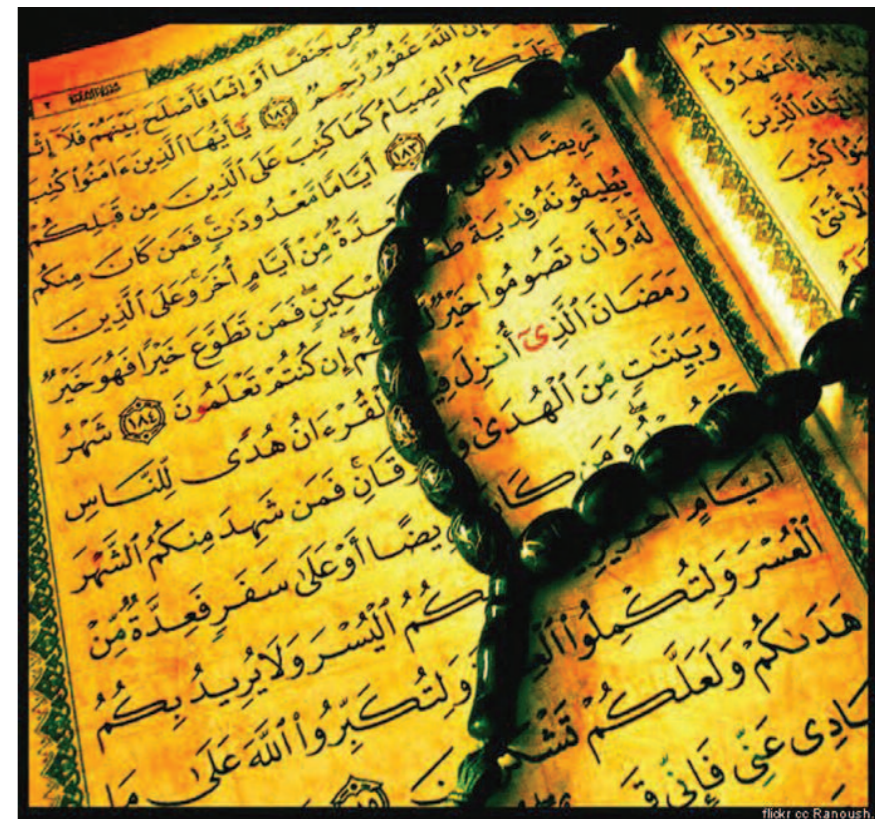 وَأَقَامَ
إِذَا عَٰهَدُوا۟
ٱلَّذِينَ
كُتِبَ
جَنَفًا أَوْ إِثْمًا فَأَصْلَحَ بَيْنَهُمْ فَلَآ
إِنَّ ٱللَّهَ غَفُورٌ رَّحِيمٌ ١٨٢ يَٰٓأَيُّهَا ٱلَّذِينَ ءَامَنُوا۟ كُتِبَ
عَلَيْكُمُ ٱلصِّيَامُ كَمَا كُتِبَ عَلَى ٱلَّذِينَ مِن قَبْلِكُمْ
١٨٣ أَيَّامًا مَّعْدُودَٰتٍ فَمَن كَانَ مِنكُم
مَّرِيضًا أَوْ فَعِدَّةٌ مِّنْ أَيَّامٍ أُخَرَ وَعَلَى ٱلَّذِينَ
يُطِيقُونَهُۥ فِدْيَةٌ مِسْكِينٍ فَمَن تَطَوَّعَ خَيْرًا فَهُوَ خَيْرٌ
لَّهُۥ وَأَن تَصُومُوا۟ خَيْرٌ إِن كُنتُمْ تَعْلَمُونَ ١٨٤ شَهْرُ
رَمَضَانَ ٱلَّذِىٓ أُنزِلَ ٱلْقُرْءَانُ هُدًى لِّلنَّاسِ
وَبَيِّنَٰتٍ مِّنَ ٱلْهُدَىٰ فَمَن شَهِدَ مِنكُمُ ٱلشَّهْرَ
وَمَن كَانَ مَرِيضًا أَوْ عَلَىٰ سَفَرٍ فَعِدَّةٌ مِّنْ
أَيَّامٍ أُخَرَ بِكُمُ ٱلْيُسْرَ وَلَا يُرِيدُ بِكُمُ
ٱلْعُسْرَ وَلِتُكْمِلُوا۟ وَلِتُكَبِّرُوا۟ ٱللَّهَ عَلَىٰ مَا
هَدَىٰكُمْ وَلَعَلَّكُمْ تَشْكُرُونَ
عَنِّى فَإِنِّى
flickr cc Ranoush.